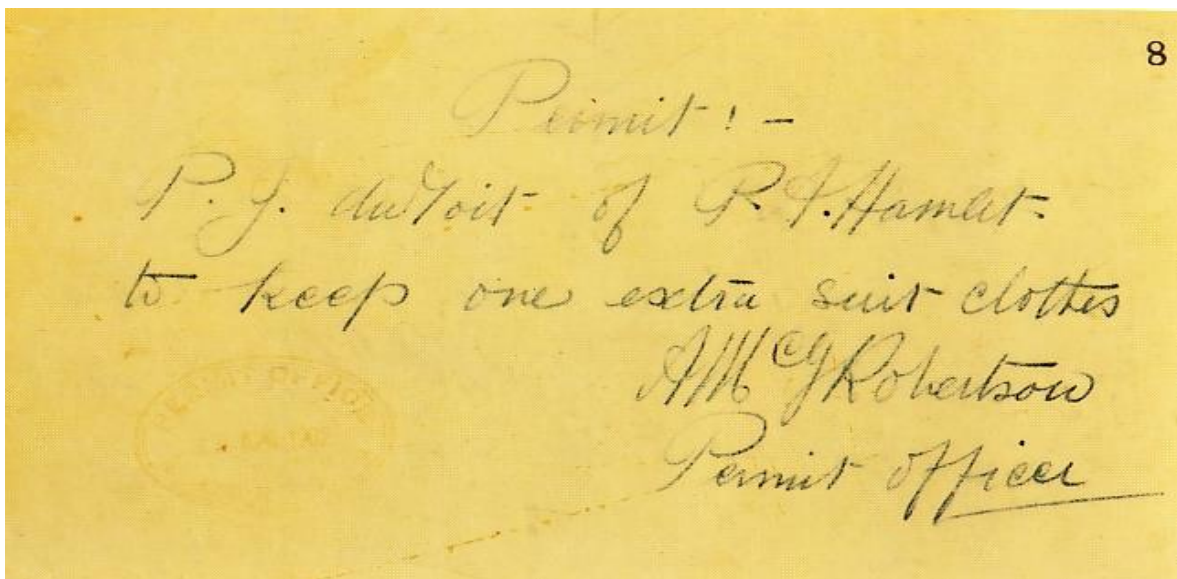 8
Permit:-
P. J. duToit of R. J. Hamlet.
to keep one extra suit clothes
A McG Robertson
Permit officer
PERMIT OFFICE